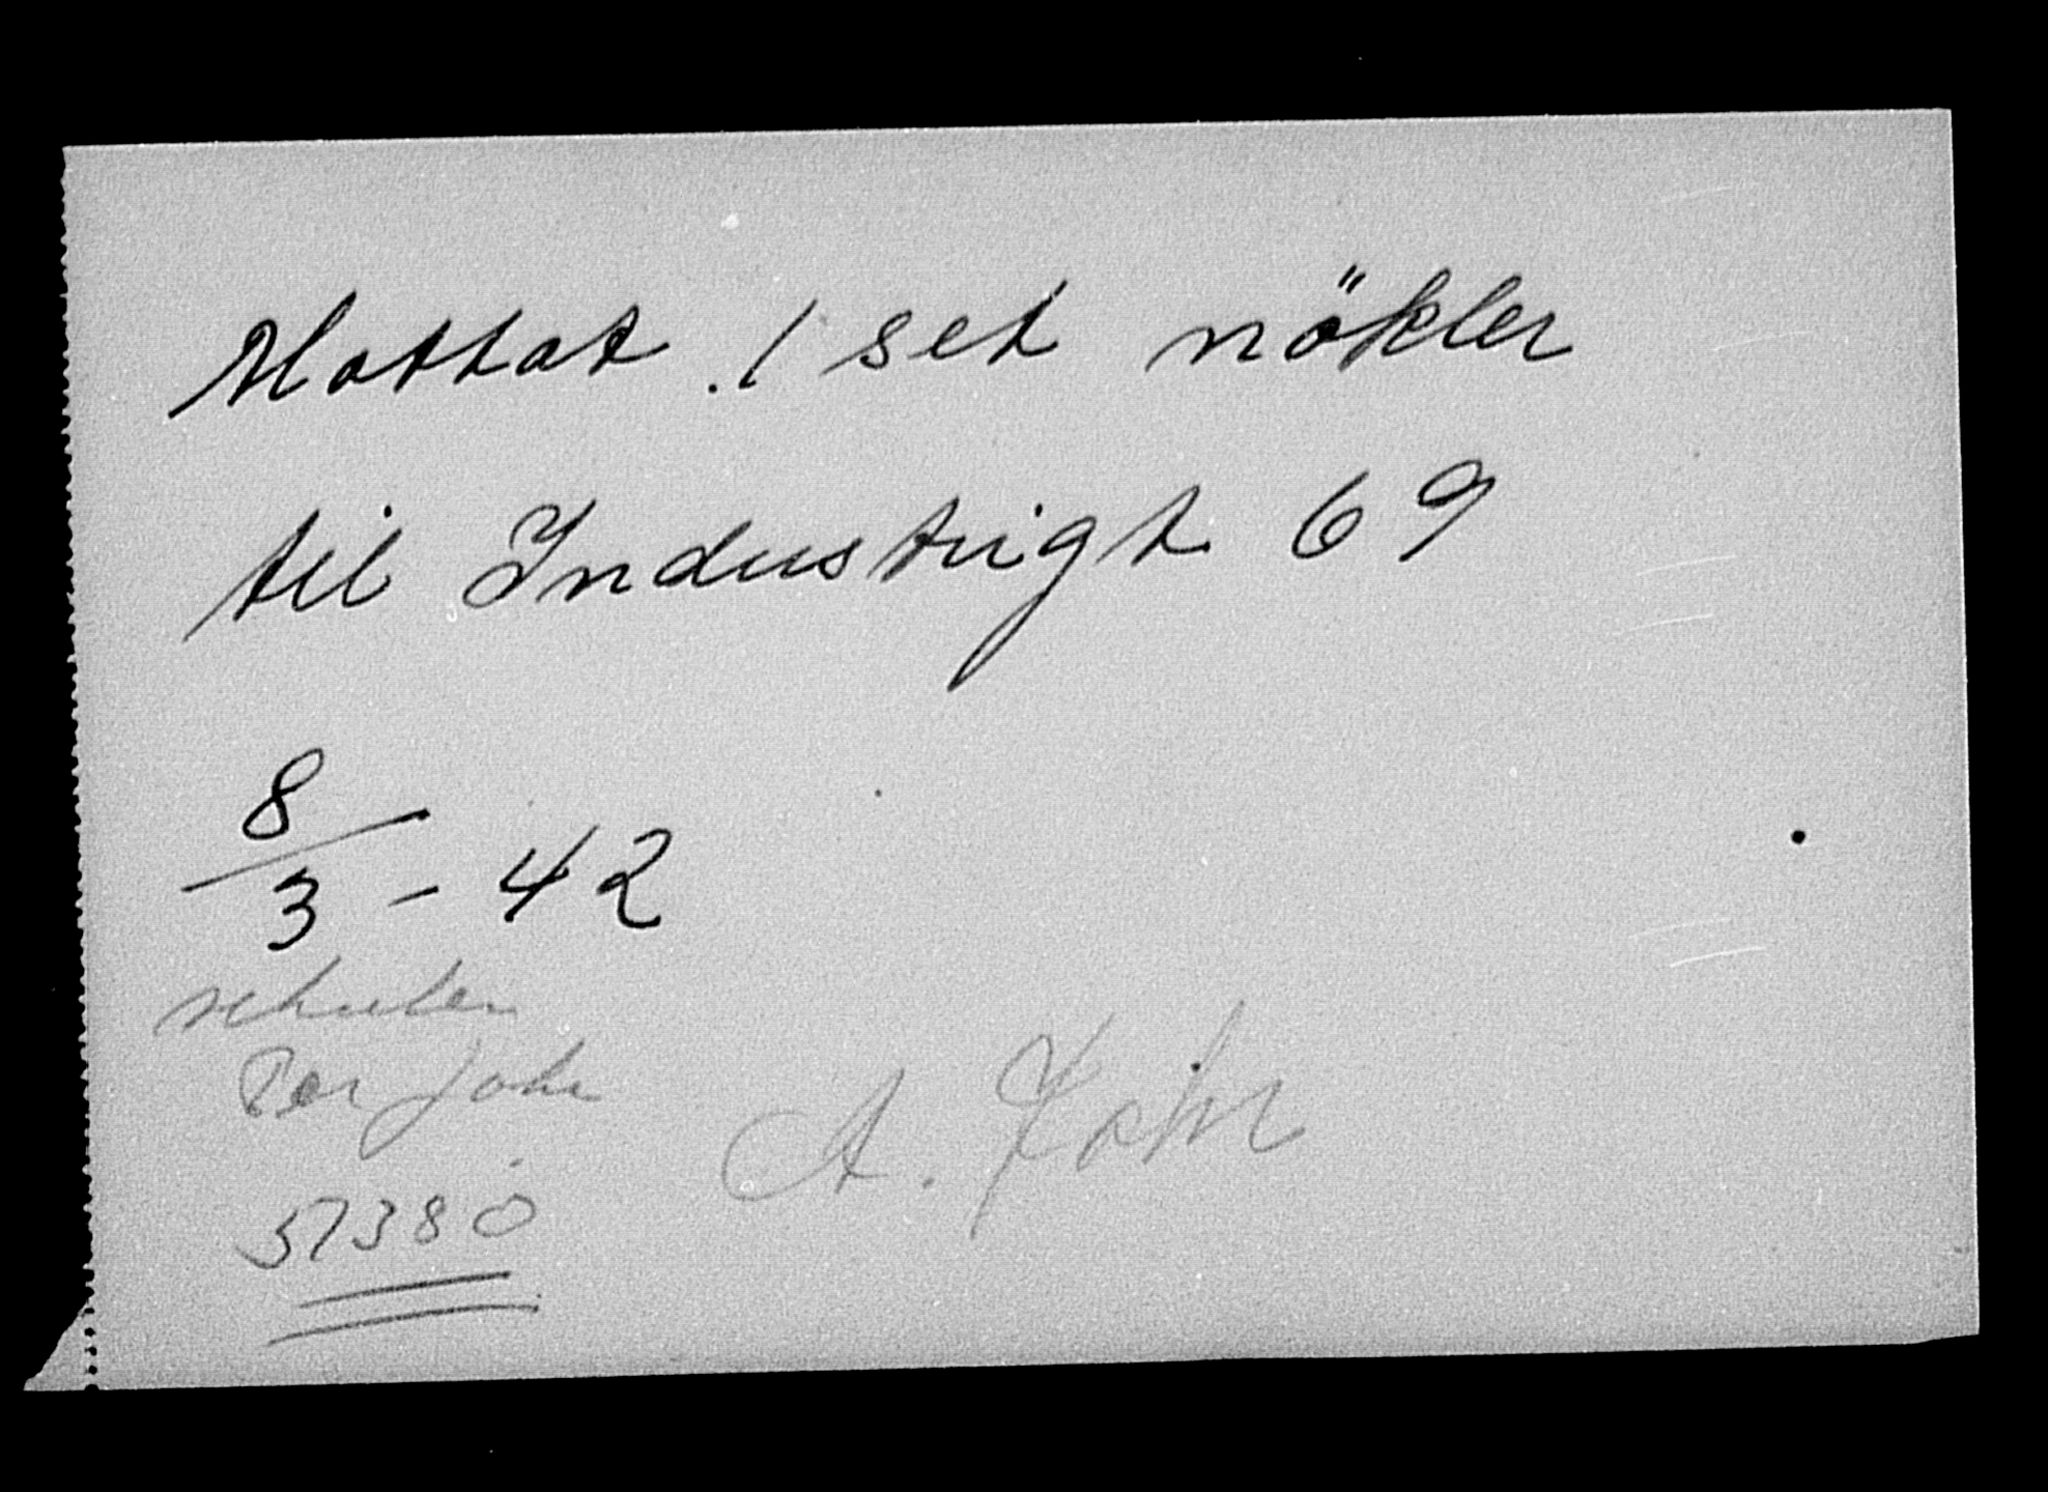 Mottat 1 set nökler
til Industrigt 69
8/3 - 42
schulen
Per John
A.
57380